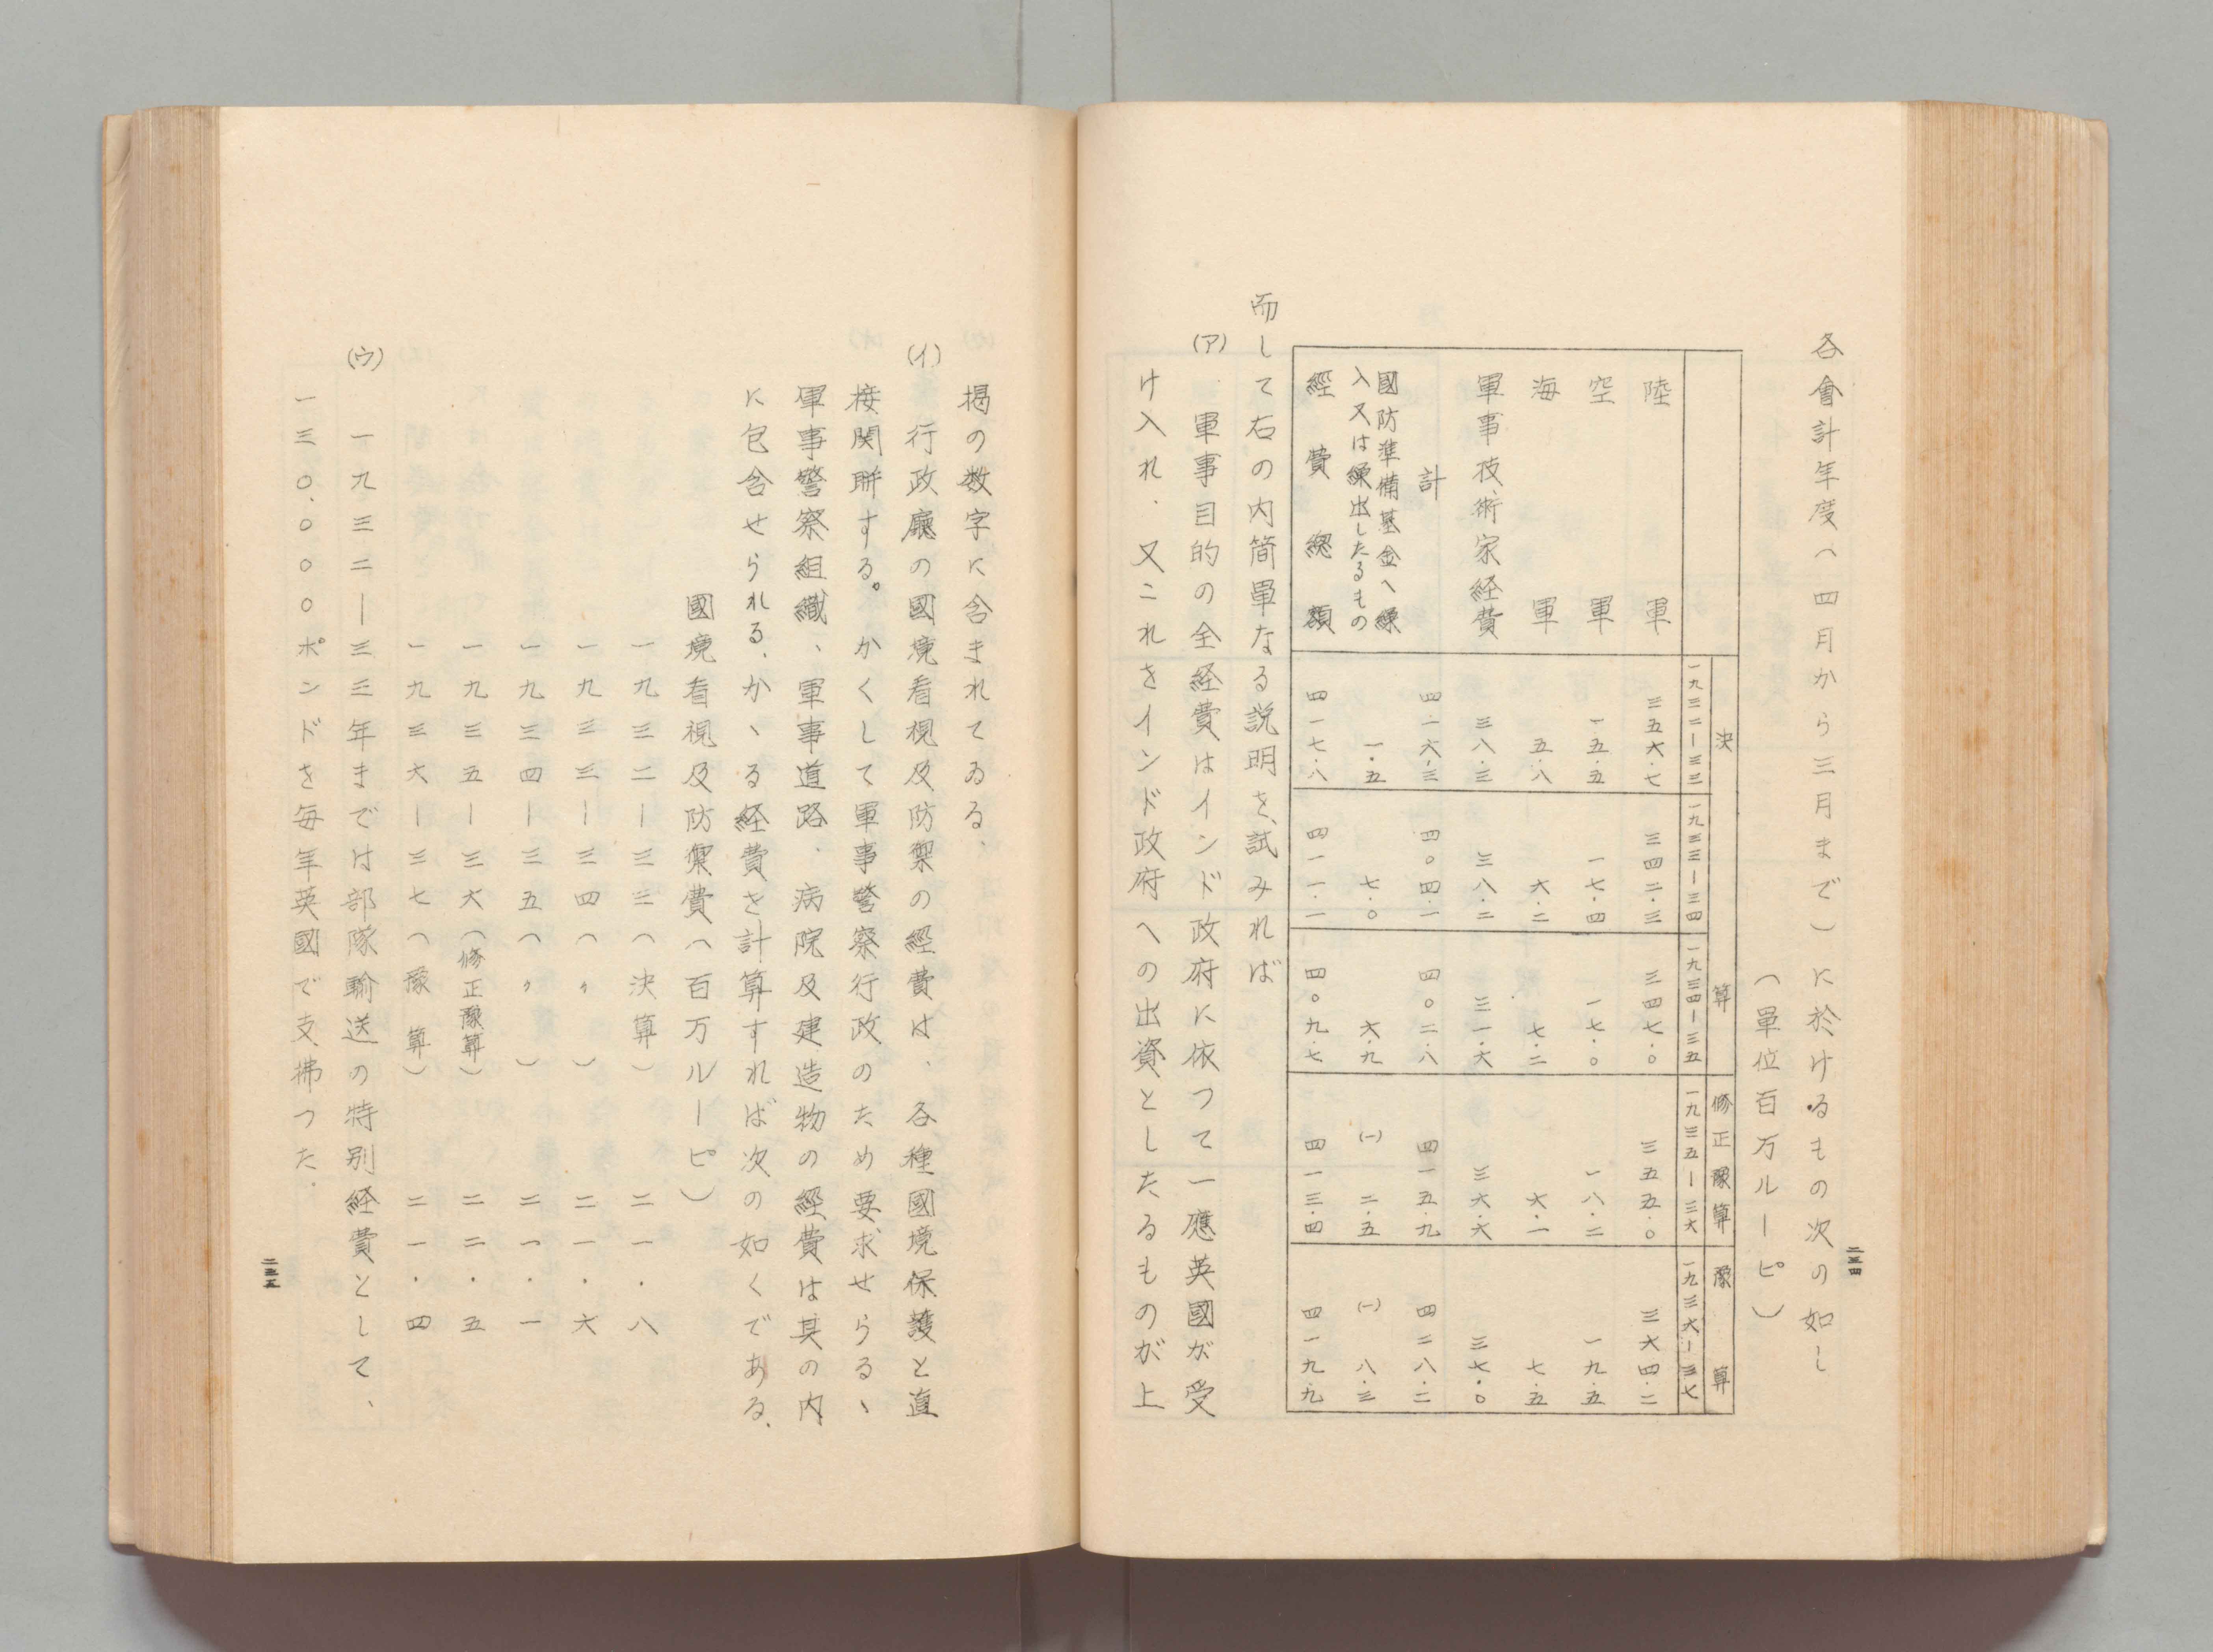 各會計年度(四月から三月まで)に於けるもの次の如し
(單位百万ルーピ)
決算
修正豫算
豫算
一九三二ー三三
一九三三ー三四
一九三四ー三五
一九三五ー三六
一九三六ー三七
陸軍 三五六・七 三四二・三 三四七・〇 三五五・〇 三六四・二
空軍 一五・五 一七・四 一七・〇 一八・二 一九・五
海軍 五・八 六・二 七・二 六・一 七・五
軍事技術家経費 三八・三 三八・二 三一・六 三六・六 三七・〇
計 四一六・三 四〇四・一 四〇二・八 四一五・九 四二八・二
國防準備基金へ繰
入又は繰出したるもの 一・五 七・〇 六・九 (一)二・五 (一)八・三
經費總額 四一七・八 四一一・一 四〇九・七 四一三・四 四一九・九
而して右の内簡單なる説明を試みれば
(ア) 軍事目的の全経費はインド政府に依つて一應英國が受
け入れ、又これをインド政府への出資としたるものが上
二三四
掲の数字に含まれてゐる、
(イ) 行政廳の國境看視及防禦の經費は、各種國境保護と直
接関聯する。かくして軍事警察行政のため要求せらるゝ
軍事警察組織、軍事道路、病院及建造物の經費は其の内
に包含せられる、かゝる経費を計算すれば次の如くである、
國境看視及防禦費(百万ルーピ)
一九三二ー三三(決算) 二一・八
一九三三ー三四(〃) 二一・六
一九三四ー三五(〃) 二一・一
一九三五ー三六(修正豫算) 二二・五
一九三六ー三七(豫算) 二一・四
(ウ) 一九三二ー三三年までは部隊輸送の特別経費として、
一三〇、〇〇〇ポンドを毎年英國で支拂つた、
二三五